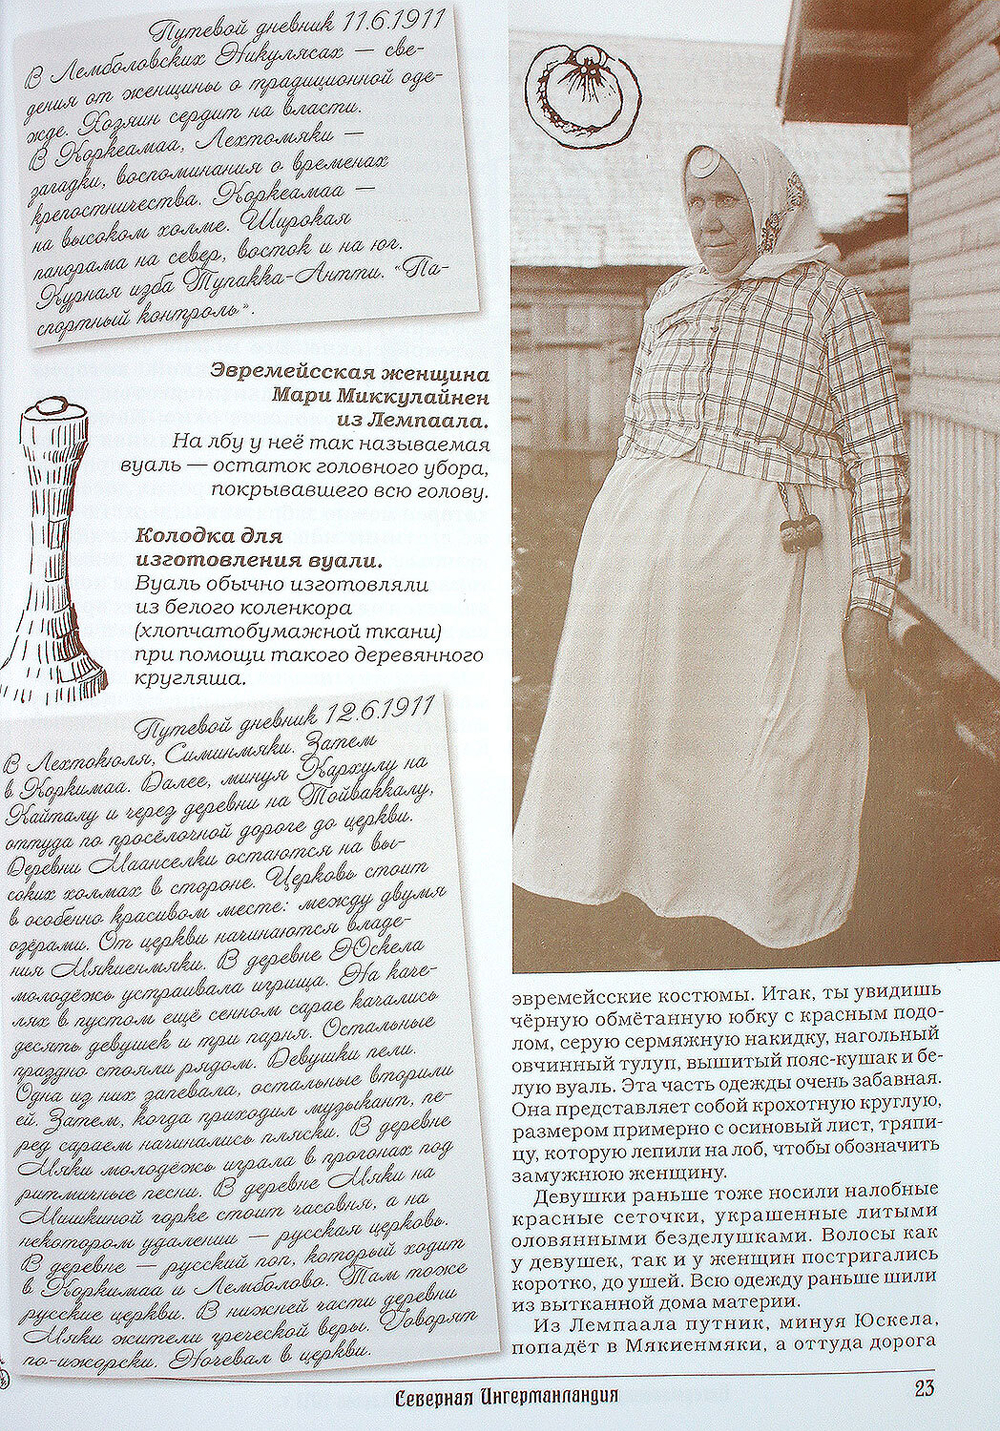 Путевой дневник 11.6.1911
В Лемболовских Никулясах — све-
дения от женщины о традиционной оде-
жде. Хозяин сердит на власти.
В Коркеамаа, Лехтомяки —
загадки, воспоминания о временах
крепостничества. Коркеамаа —
на высоком холме. Широкая
панорама на север, восток и на юг.
Курная изба Тупакка-Антти. "Па-
спортный контроль".
Эвремейсская женщина
Мари Миккулайнен
из Лемпаала.
На лбу у неё так называемая
вуаль — остаток головного убора,
покрывавшего всю голову.
Колодка для
изготовления вуали.
Вуаль обычно изготовляли
из белого коленкора
(хлопчатобумажной ткани)
при помощи такого деревянного
кругляша.
Путевой дневник 12.6.1911
В Лехтокюля, Симинмяки. Затем
в Коркимаа. Далее, минуя Кархулу на
Кайталу и через деревни на Тойваккалу,
оттуда по просёлочной дороге до церкви.
Деревни Маанселки остаются на вы-
соких холмах в стороне. Церковь стоит
в особенно красивом месте: между двумя
озёрами. От церкви начинаются владе-
ния Мякиенмяки. В деревне Юскела
молодёжь устраивала игрища. На каче-
лях в пустом ещё сенном сарае качались
десять девушек и три парня. Остальные
праздно стояли рядом. Девушки пели.
Одна из них запевала, остальные вторили
ей. Затем, когда приходил музыкант, пе-
ред сараем начинались пляски. В деревне
Мяки молодёжь играла в прогонах под
ритмичные песни. В деревне Мяки на
Мишкиной горке стоит часовня, а на
некотором удалении — русская церковь.
В деревне — русский поп, который ходит
в Коркимаа и Лемболово. Там тоже
русские церкви. В нижней части деревни
Мяки жители греческой веры. Говорят
по-ижорски. Ночевал в церкви.
эвремейсские костюмы. Итак, ты увидишь
чёрную обмётанную юбку с красным подо-
лом, серую сермяжную накидку, нагольный
овчинный тулуп, вышитый пояс-кушак и бе-
лую вуаль. Эта часть одежды очень забавная.
Она представляет собой крохотную круглую,
размером примерно с осиновый лист, тряпи-
цу, которую лепили на лоб, чтобы обозначить
замужнюю женщину.
Девушки раньше тоже носили налобные
красные сеточки, украшенные литыми
оловянными безделушками. Волосы как
у девушек, так и у женщин постригались
коротко, до ушей. Всю одежду раньше шили
из вытканной дома материи.
Из Лемпаала путник, минуя Юскела,
попадёт в Мякиенмяки, а оттуда дорога
Северная Ингерманландия
23